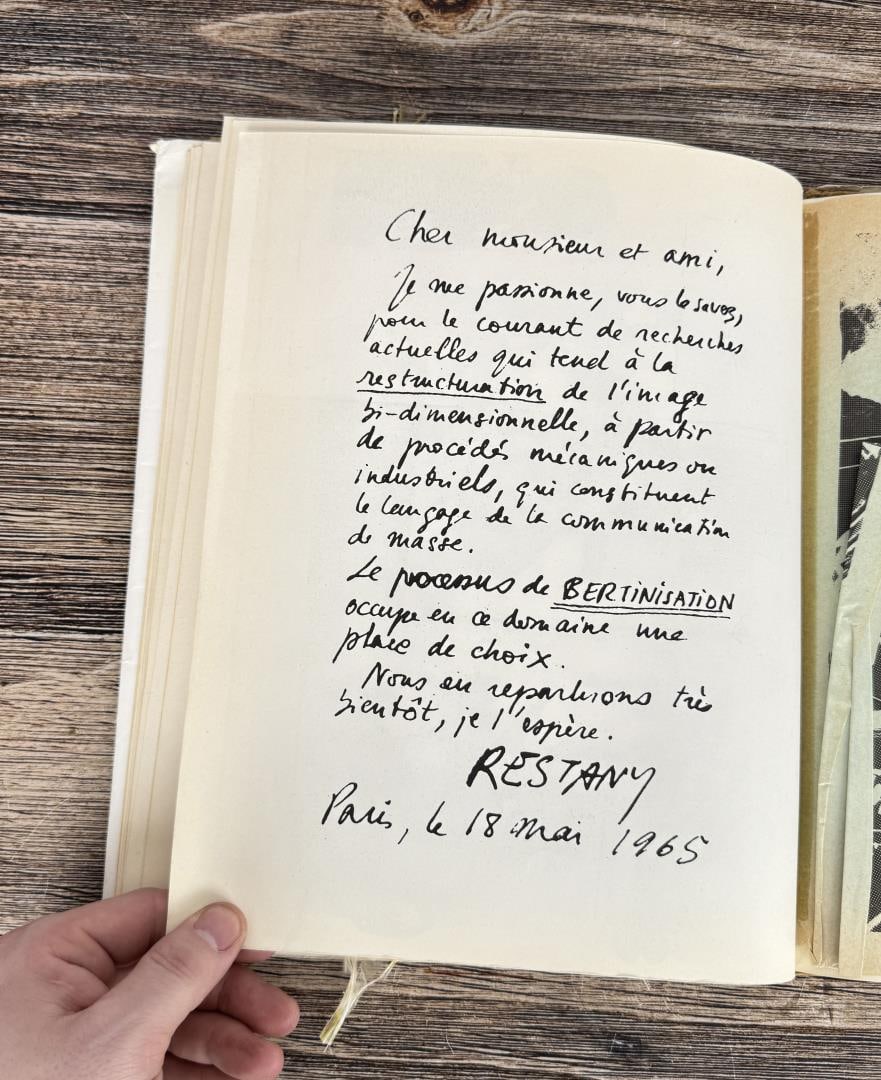 Cher monsieur et ami,
Je me passionne, vous le savez,
pour le courant de recherches
actuelles qui tend à la
restructuration de l'image
bi-dimensionnelle, à partir
de procédés mécaniques ou
industriels, qui constituent
le langage de la communication
de masse.
Le processus de BERTINISATION
occupe en ce domaine une
place de choix.
Nous en reparlerons très
bientôt, je l'espère.
RESTANY
Paris, le 18 mai 1965